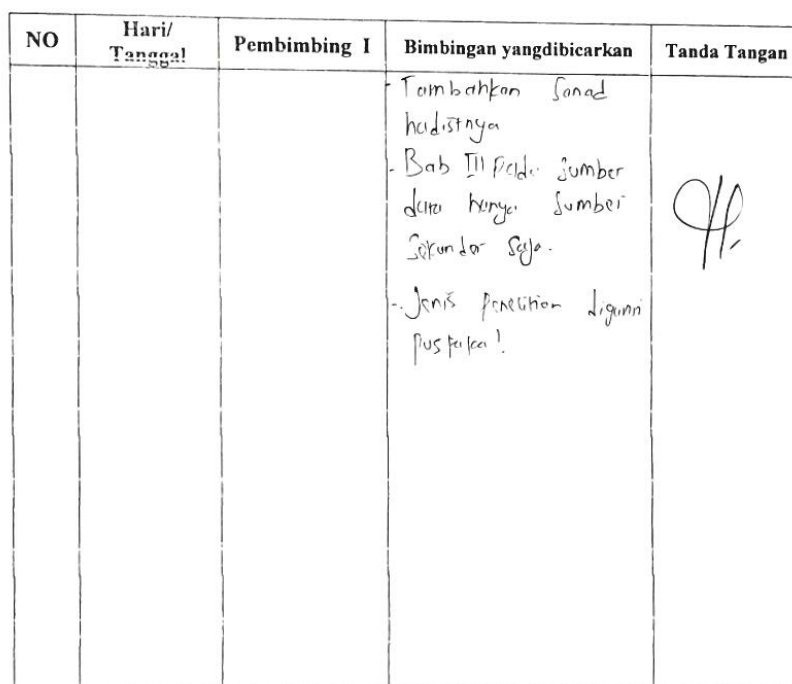 NO
Hari/
Tanggal
Pembimbing I
Bimbingan yangdibicarkan
Tanda Tangan
- Tambahkan Sanad
hadistnya
- Bab III pada Sumber
data hanya Sumber
Sekunder Saja.
- Jenis Penelitian diganti
Pustaka!